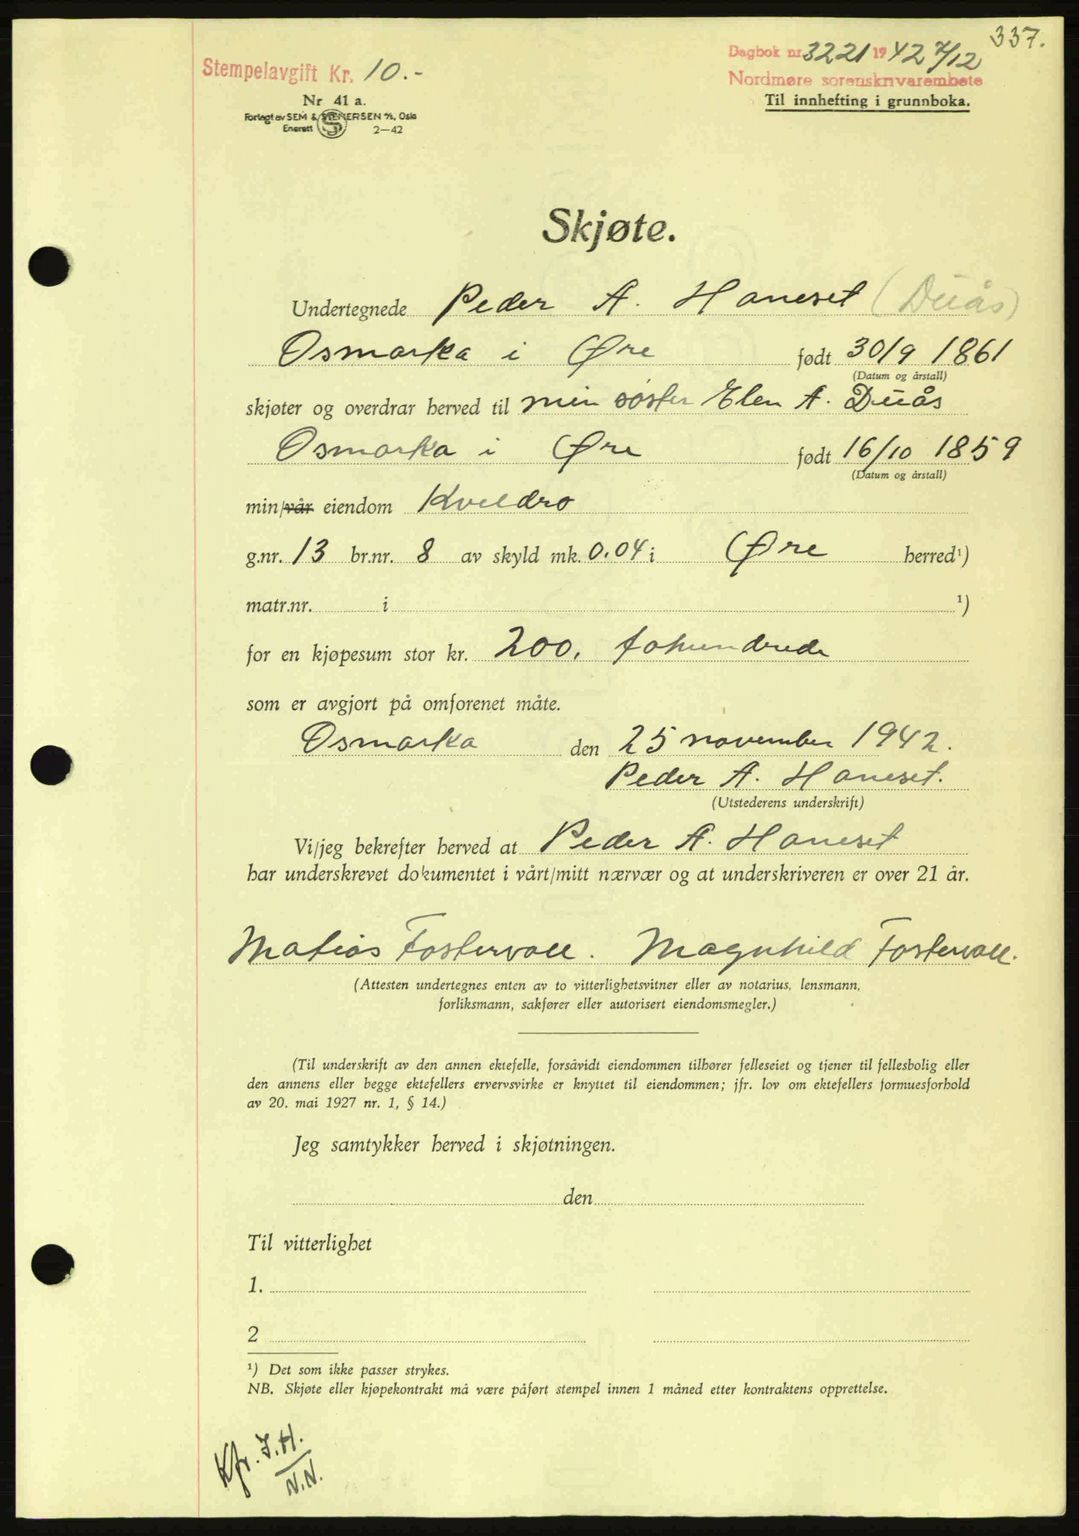 337.
Stempelavgift Kr. 10.-
Dagbok nr. 3221 1942 7/12
Nordmøre sorenskrivarembete
Nr 41 a.
Til innhefting i grunnboka.
Forlagt av SEM & STENERSEN A/S, Oslo
Enerett 2—42
Skjøte.
Undertegnede Peder A. Haneset (Duås)
Osmarka i Øre født 30/9 1861
(Datum og årstall)
skjøter og overdrar herved til min søster Elen A. Duås
Osmarka i Øre født 16/10 1859
(Datum og årstall)
min/vår eiendom Kveldro
g.nr. 13 br.nr. 8 av skyld mk. 0.04 i Øre herred¹)
matr.nr. i ¹)
for en kjøpesum stor kr. 200. tohundrede
som er avgjort på omforenet måte.
Osmarka den 25 november 1942.
Peder A. Haneset.
(Utstederens underskrift)
Vi/jeg bekrefter herved at Peder A. Haneset
har underskrevet dokumentet i vårt/mitt nærvær og at underskriveren er over 21 år.
Matias Fostervoll. Magnhild Fostervoll.
(Attesten undertegnes enten av to vitterlighetsvitner eller av notarius, lensmann,
forliksmann, sakfører eller autorisert eiendomsmegler.)
(Til underskrift av den annen ektefelle, forsåvidt eiendommen tilhører felleseiet og tjener til fellesbolig eller
den annens eller begge ektefellers ervervsvirke er knyttet til eiendommen; jfr. lov om ektefellers formuesforhold
av 20. mai 1927 nr. 1, § 14.)
Jeg samtykker herved i skjøtningen.
den
Til vitterlighet
1.
2
¹) Det som ikke passer strykes.
NB. Skjøte eller kjøpekontrakt må være påført stempel innen 1 måned etter kontraktens opprettelse.
Kfr. J.H.
N.N.